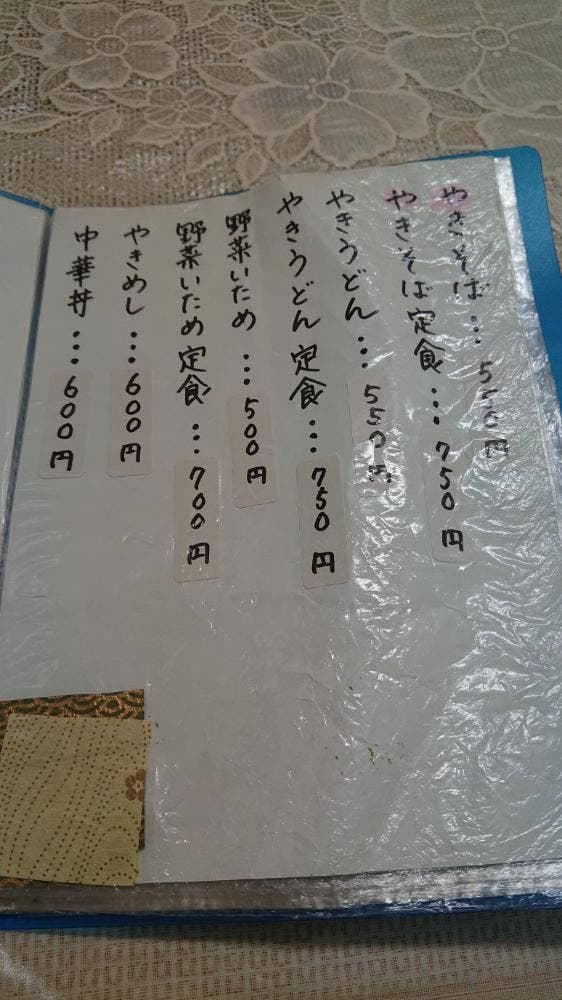 やきそば…550円
やきそば定食…750円
やきうどん…550円
やきうどん定食…750円
野菜いため…500円
野菜いため定食…700円
やきめし…600円
中華丼…600円